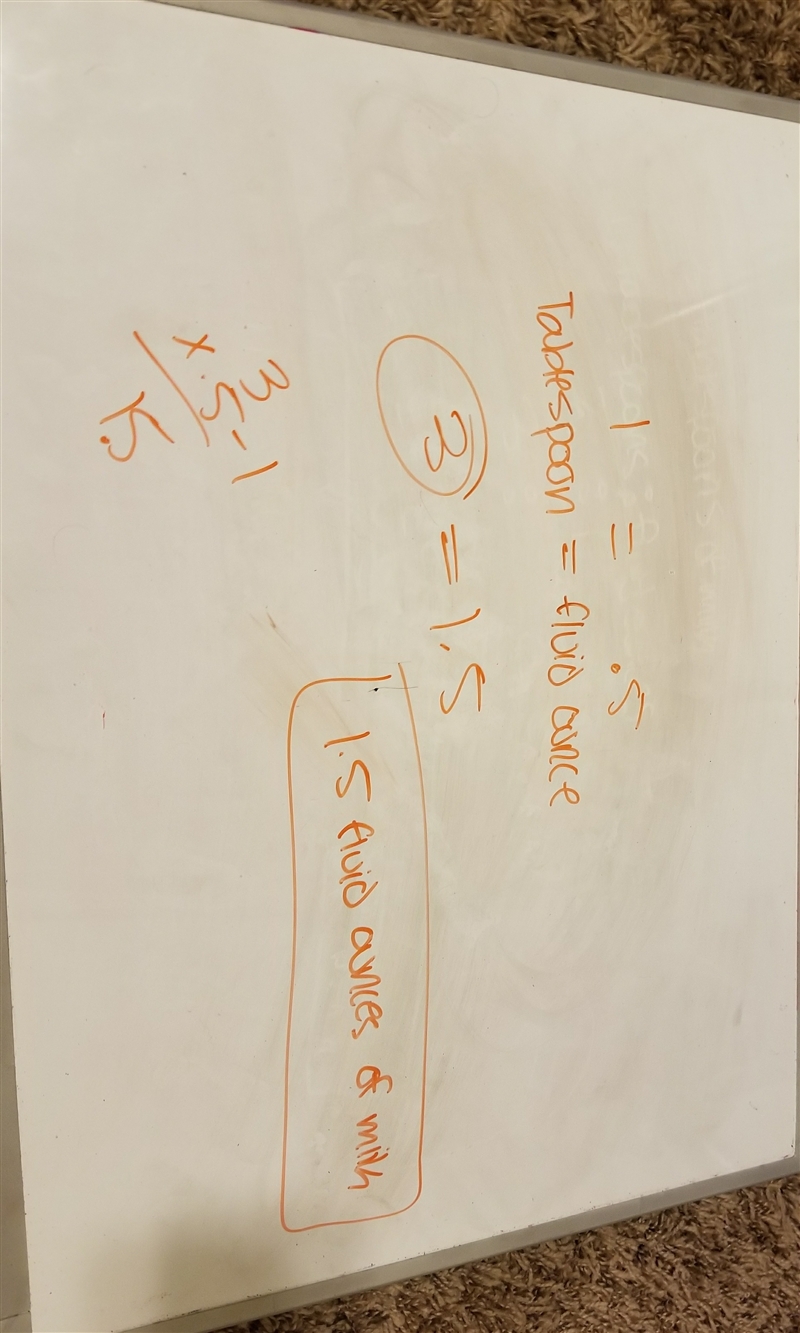 1 = .5
Tablespoon = fluid ounce
3 = 1.5
1.5 fluid ounces of milk
3
x .5 - 1
1.5